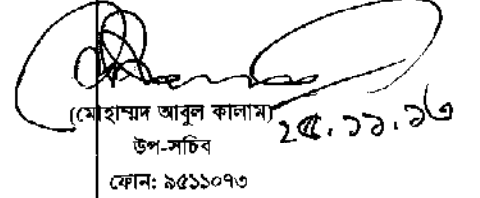 (মোহাম্মদ আবুল কালাম)
২৫.১১.১৩
উপ-সচিব
ফোন: ৯৫১১০৭৩